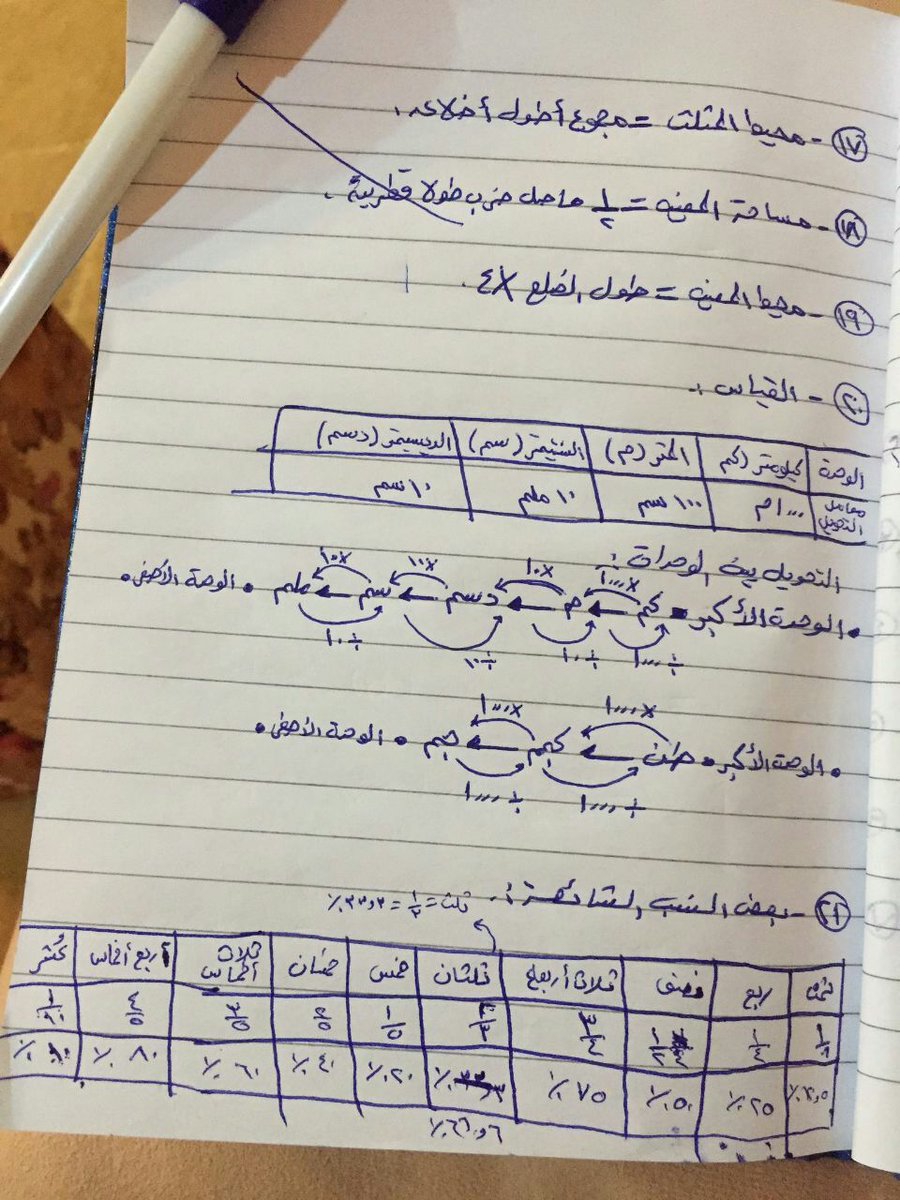 ١٧- محيط المثلث = مجموع أطول أضلاعه.
١٨- مساحة المعين = ١/٢ حاصل ضرب طولا قطرية.
١٩- محيط المعين = طول الضلع ×٤.
٢٠- القياس :
الوحدة كيلومتر (كم) المتر (م) السنتيمتر (سم) الديسيمتر (دسم)
معامل التحويل ١٠٠٠م ١٠٠سم ١٠ملم ١٠سم
التحويل بين الوحدات :
×١٠٠٠ ×١٠ ×١٠ ×١٠
• الوحدة الأكبر • كم ← م ← دسم ← سم ← ملم • الوحدة الأصغر •
÷١٠٠٠ ÷١٠ ÷١٠ ÷١٠
×١٠٠٠ ×١٠٠٠
• الوحدة الأكبر • طن ← كجم ← جم • الوحدة الأصغر •
÷١٠٠٠ ÷١٠٠٠
٢١- بعض النسب الشائعة :
ثلث = ١/٣ = ٣٣,٣٪
ثمن ربع نصف ثلاث أربع ثلثان خمس خمسان ثلاث أخماس أربع أخماس عُشر
١/٤ ١/٢ ٣/٤ ٢/٣ ١/٥ ٢/٥ ٣/٥ ٤/٥ ١/١٠
٢٥٪ ٥٠٪ ٧٥٪ ٢٠٪ ٤٠٪ ٦٠٪ ٨٠٪
٦٦,٦٪